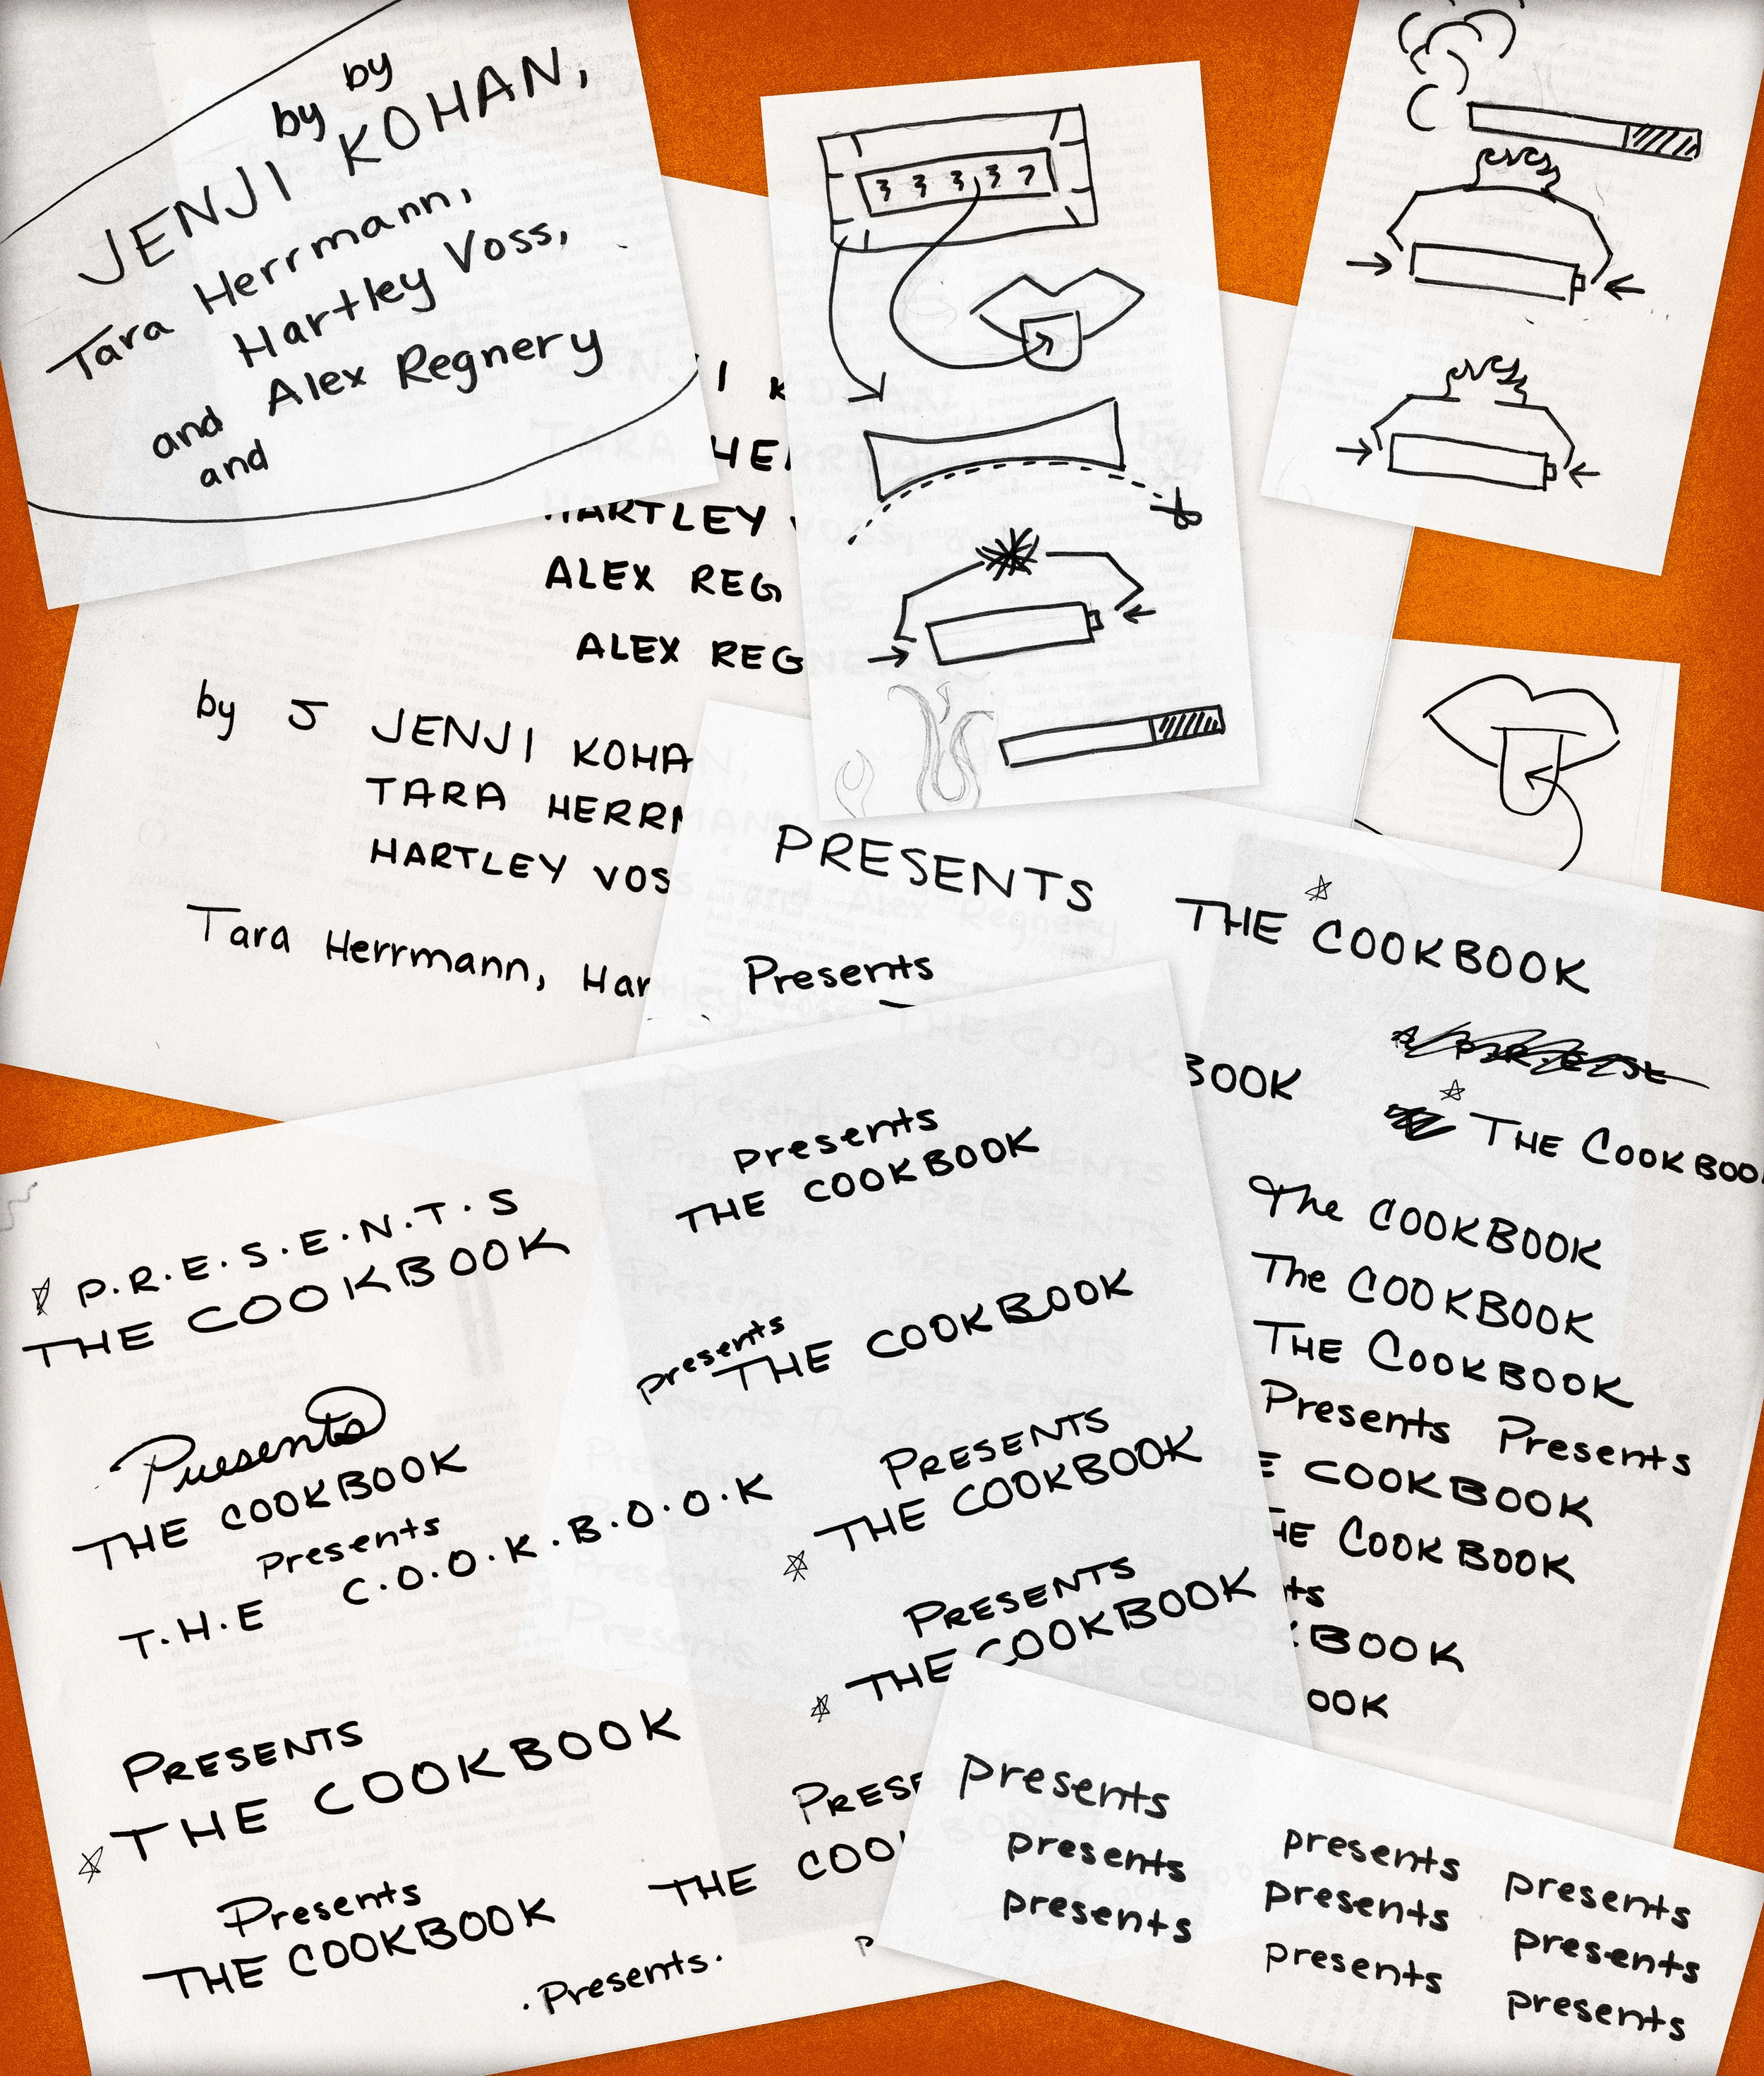 by by
JENJI KOHAN,
Tara Herrmann,
Hartley Voss,
and Alex Regnery
and
3 3 3 3 7
I K
HER
HARTLEY V
ALEX REG
ALEX REG
by J JENJI KOHA
TARA HERR
HARTLEY VOS
Tara Herrmann, Har
PRESENTS
Presents
THE COOKBOOK
BOOK
THE COOKBOO
The COOKBOOK
The COOKBOOK
THE COOKBOOK
Presents Presents
E COOKBOOK
HE COOKBOOK
ts
KBOOK
OOK
P.R.E.S.E.N.T.S
THE COOKBOOK
Presents
THE COOKBOOK
Presents
T.H.E C.O.O.K.B.O.O.K
PRESENTS
THE COOKBOOK
Presents
THE COOKBOOK
presents
THE COOKBOOK
presents
THE COOKBOOK
PRESENTS
THE COOKBOOK
PRESENTS
THE COOKBOOK
PRESE
THE COO
.Presents.
P
presents
presents
presents
presents
presents
presents
presents
presents
presents